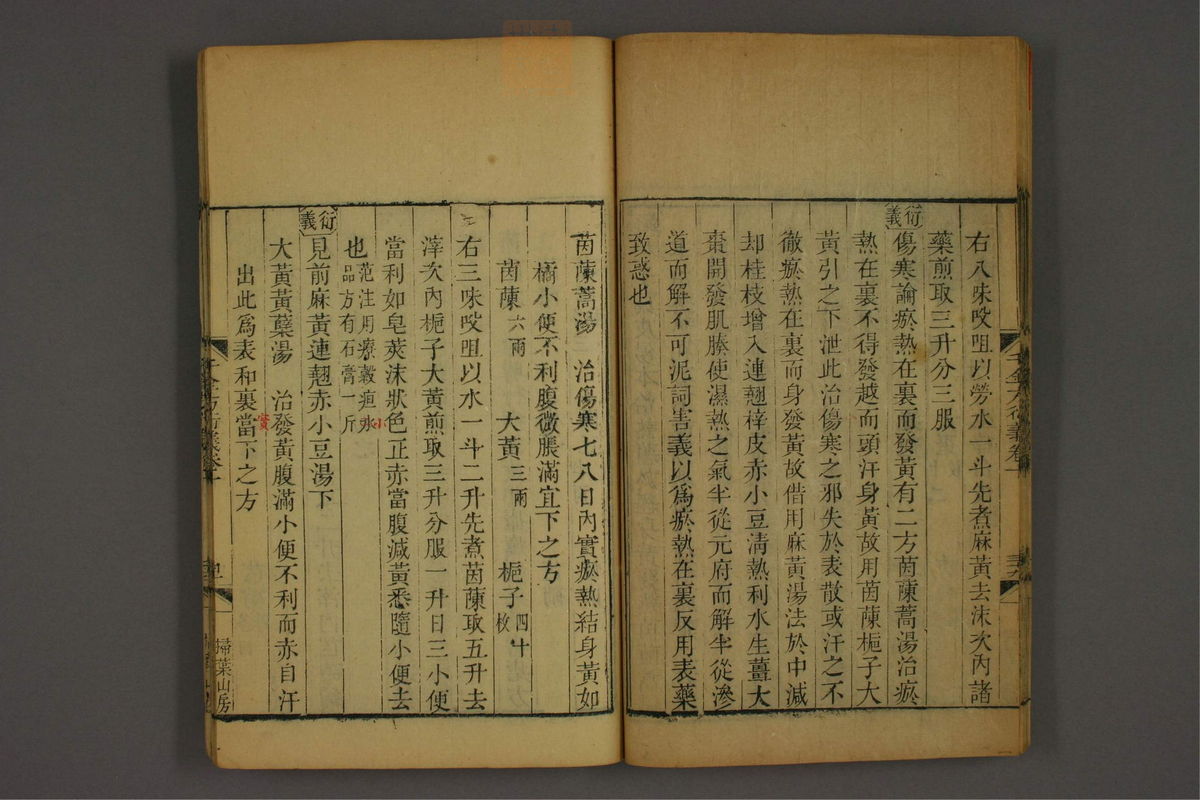 右八味㕮咀以勞水一斗先煮麻黃去沫次內諸
藥煎取三升分三服
衍義
傷寒論瘀熱在裏而發黃有二方茵蔯蒿湯治瘀
熱在裏不得發越而頭汗身黃故用茵蔯梔子大
黃引之下泄此治傷寒之邪失於表散或汗之不
徹瘀熱在裏而身發黃故借用麻黃湯法於中減
却桂枝增入連翹梓皮赤小豆淸熱利水生薑大
棗開發肌腠使濕熱之氣半從元府而解半從滲
道而解不可泥詞害義以爲瘀熱在裏反用表藥
致惑也
茵蔯蒿湯 治傷寒七八日內實瘀熱結身黃如
橘小便不利腹微脹滿宜下之方
茵蔯六兩 大黃三兩 梔子四十枚
右三味㕮咀以水一斗二升先煮茵蔯取五升去
滓次內梔子大黃煎取三升分服一升日三小便
當利如皂莢沫狀色正赤當腹減黃悉隨小便去
也范汪用療穀疸小品方有石膏一斤
衍義
見前麻黃連翹赤小豆湯下
大黃黃蘗湯 治發黃腹滿小便不利而赤自汗
出此爲表和裏實當下之方
千金方衍義卷十
掃葉山房